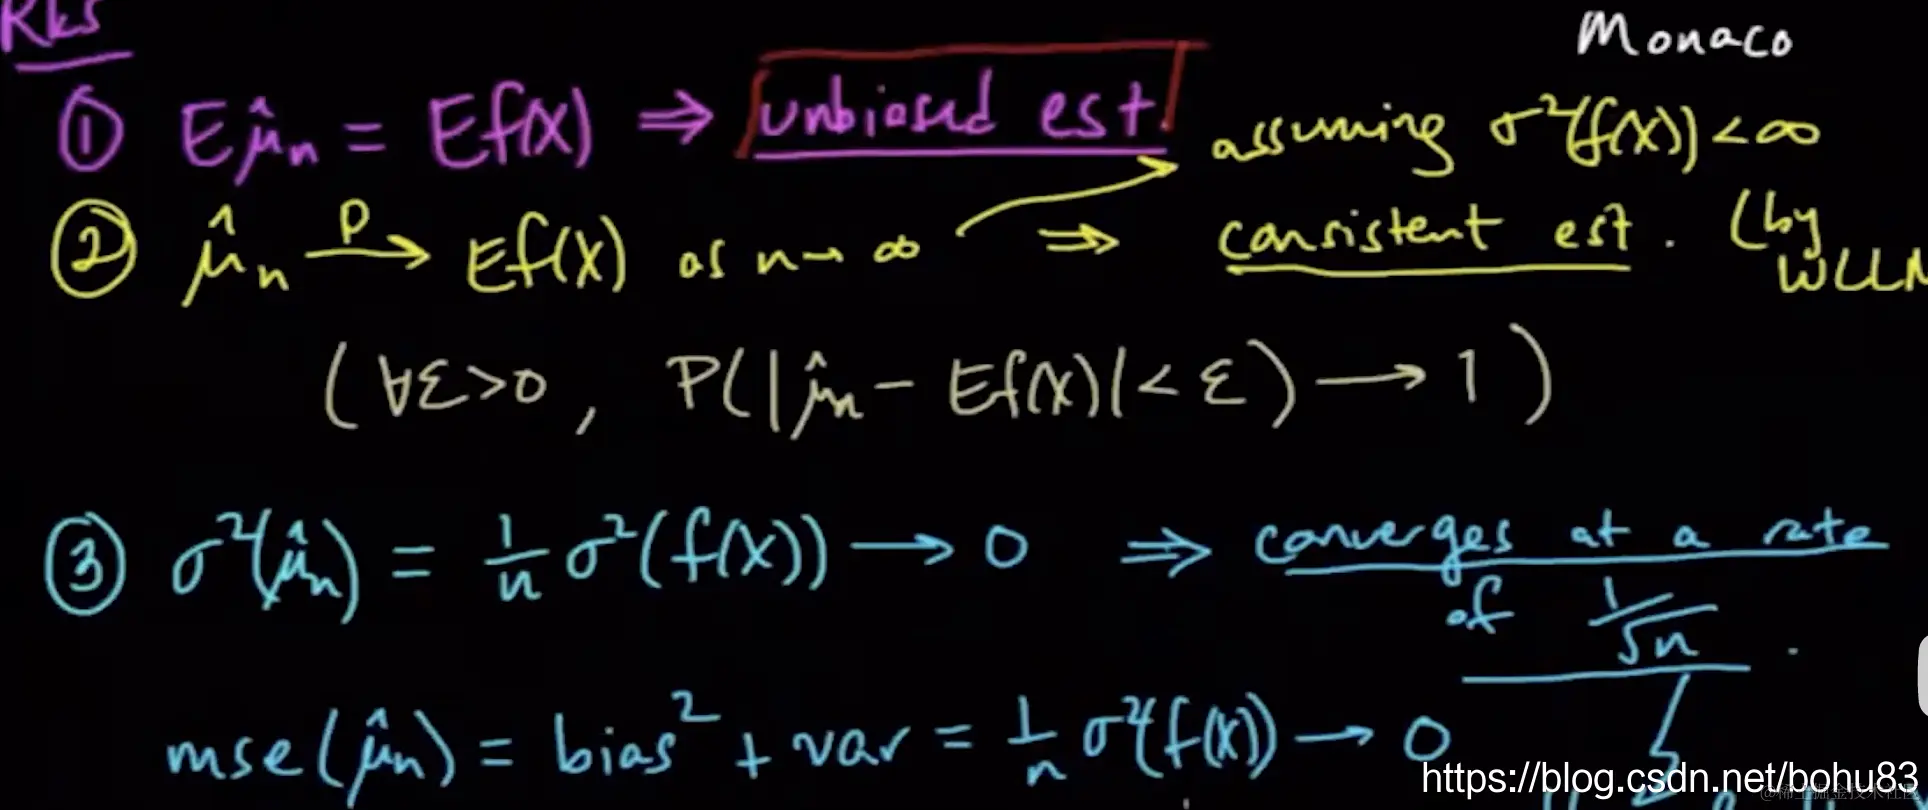 Rks
Monaco
① Eμ̂n = Ef(X) ⇒ unbiased est.
assuming σ²(f(X)) < ∞
② μ̂n →P Ef(X) as n → ∞ ⇒ consistent est. (by
WLLN
(∀ε>0, P(|μ̂n − Ef(X)| < ε) → 1)
③ σ²(μ̂n) = 1/n σ²(f(X)) → 0 ⇒ converges at a rate
of 1/√n.
mse(μ̂n) = bias² + var = 1/n σ²(f(X)) → 0
https://blog.csdn.net/bohu83